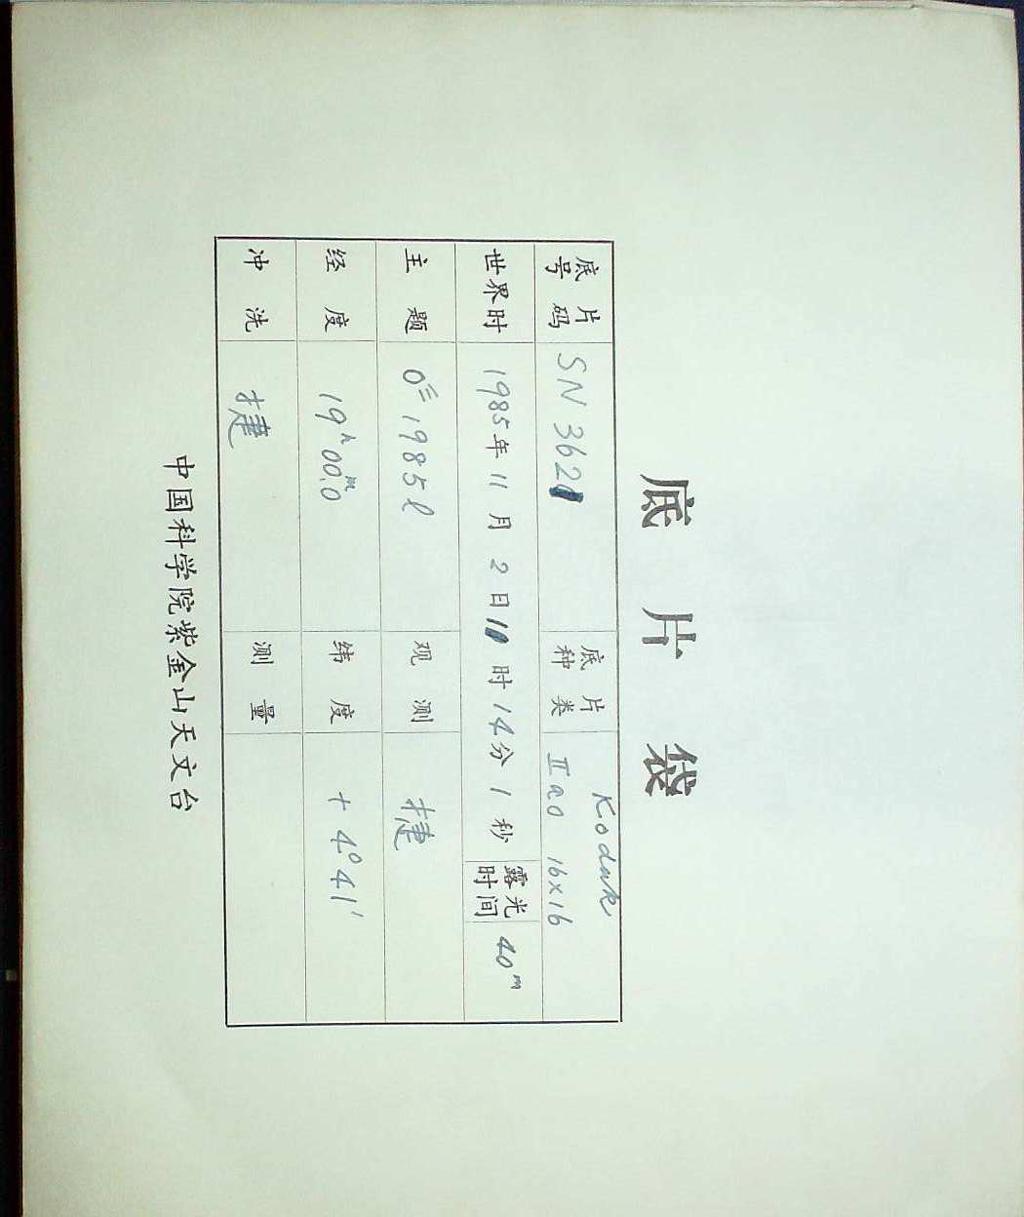 底片袋
底片号码 SN 3621 底片种类 Kodak IIaO 16×16
世界时 1985年11月2日10时14分1秒 露光时间 40ᵐ
主题 1985l 观测 捷
经度 19ʰ00ᵐ.0 纬度 +4°41′
冲洗 捷 测量
中国科学院紫金山天文台